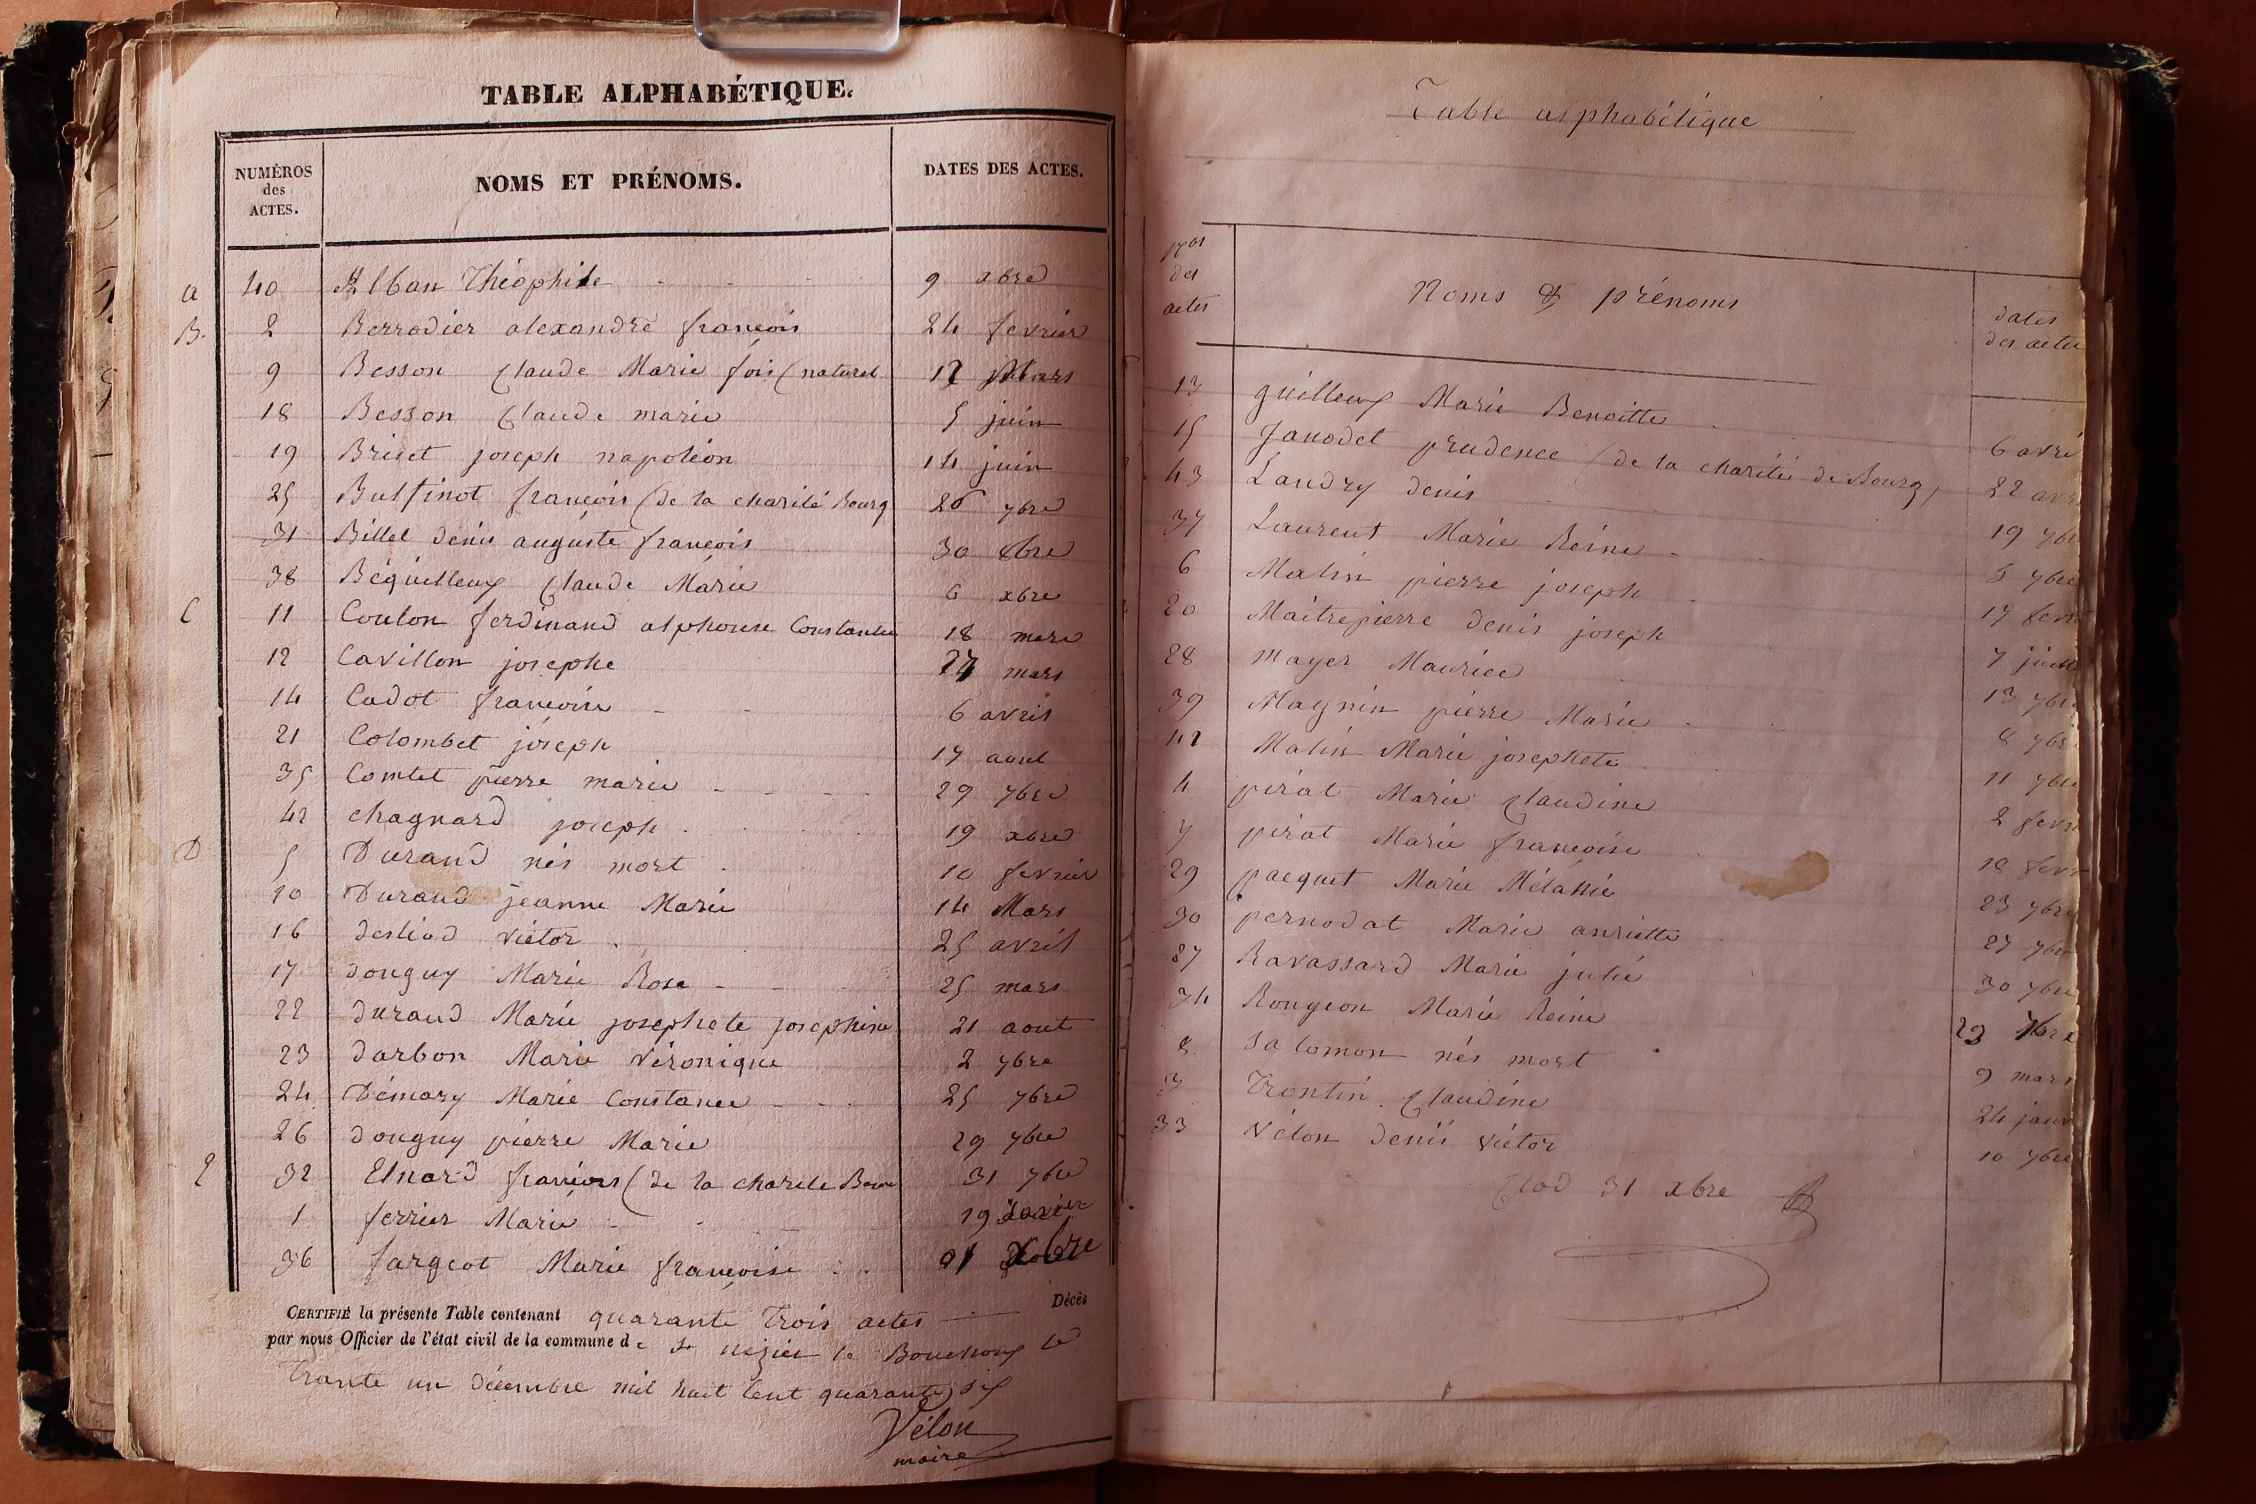 TABLE ALPHABÉTIQUE.
NUMÉROS des ACTES. NOMS ET PRÉNOMS. DATES DES ACTES.
a 40 Alban Théophile 9 xbre
B. 2 Berrodier alexandre françois 24 fevrier
9 Besson Claude Marie fois (naturel 12 Mars
18 Besson Claude marie 5 juin
19 Briset joseph napoléon 14 juin
25 Bulfinot françois (de la charité Bourg 26 7bre
31 Billet denis auguste françois 30 8bre
38 Béquilleux Claude Marie 6 xbre
C 11 Coulon ferdinand alphonse Constantin 18 mars
12 Cavillon josephe 27 mars
14 Cadot françoise 6 avril
21 Colombet joseph 17 aout
35 Comtet pierre marie 29 9bre
42 chagnard joseph 19 xbre
D 5 Durand nés mort 10 fevrier
10 Durand jeanne Marie 14 Mars
16 desliod victor 25 avril
17 donguy Marie Rose 25 mars
22 durand Marie josephete josephine 21 aout
23 darbon Marie Véronique 2 7bre
24 Démary Marie Constance 25 7bre
26 donguy pierre Marie 29 7bre
E 32 Elnard françois (de la charité 31 7bre
1 ferrier Marie 19
36 fargeot Marie françoise xbre
CERTIFIÉ la présente Table contenant quarante trois actes Décès
par nous Officier de l'état civil de la commune de St nizier le Bouchoux le
Trante un décembre mil huit Cent quarante six
Vélon
maire
Table alphabétique
Nos des actes Noms & prénoms dates des actes
13 guilleux Marie Benoitte 6 avri
15 Janodet prudence (de la charité de Bourg) 22 avr
43 Laudry denis 19
37 Laurent Marie Reine
6 Malin pierre joseph 17 fevr
20 Maitrepierre denis joseph 7 juill
28 mayer Maurice 13
39 Magnin pierre Marie 8
41 Malin Marie josephete 11
4 pirat Marie Claudine 2 fevr
7 pirat Marie françoise fevr
29 pacquet Marie Mélanie 23
30 pernodat Marie anriette 27
27 Ravassard Marie julie 30
34 Rongeon Marie Reine 23
8 Salomon nés mort 9 mars
3 Trontin Claudine 24 janv
33 Vélon denis victor 10
Clod 31 xbre